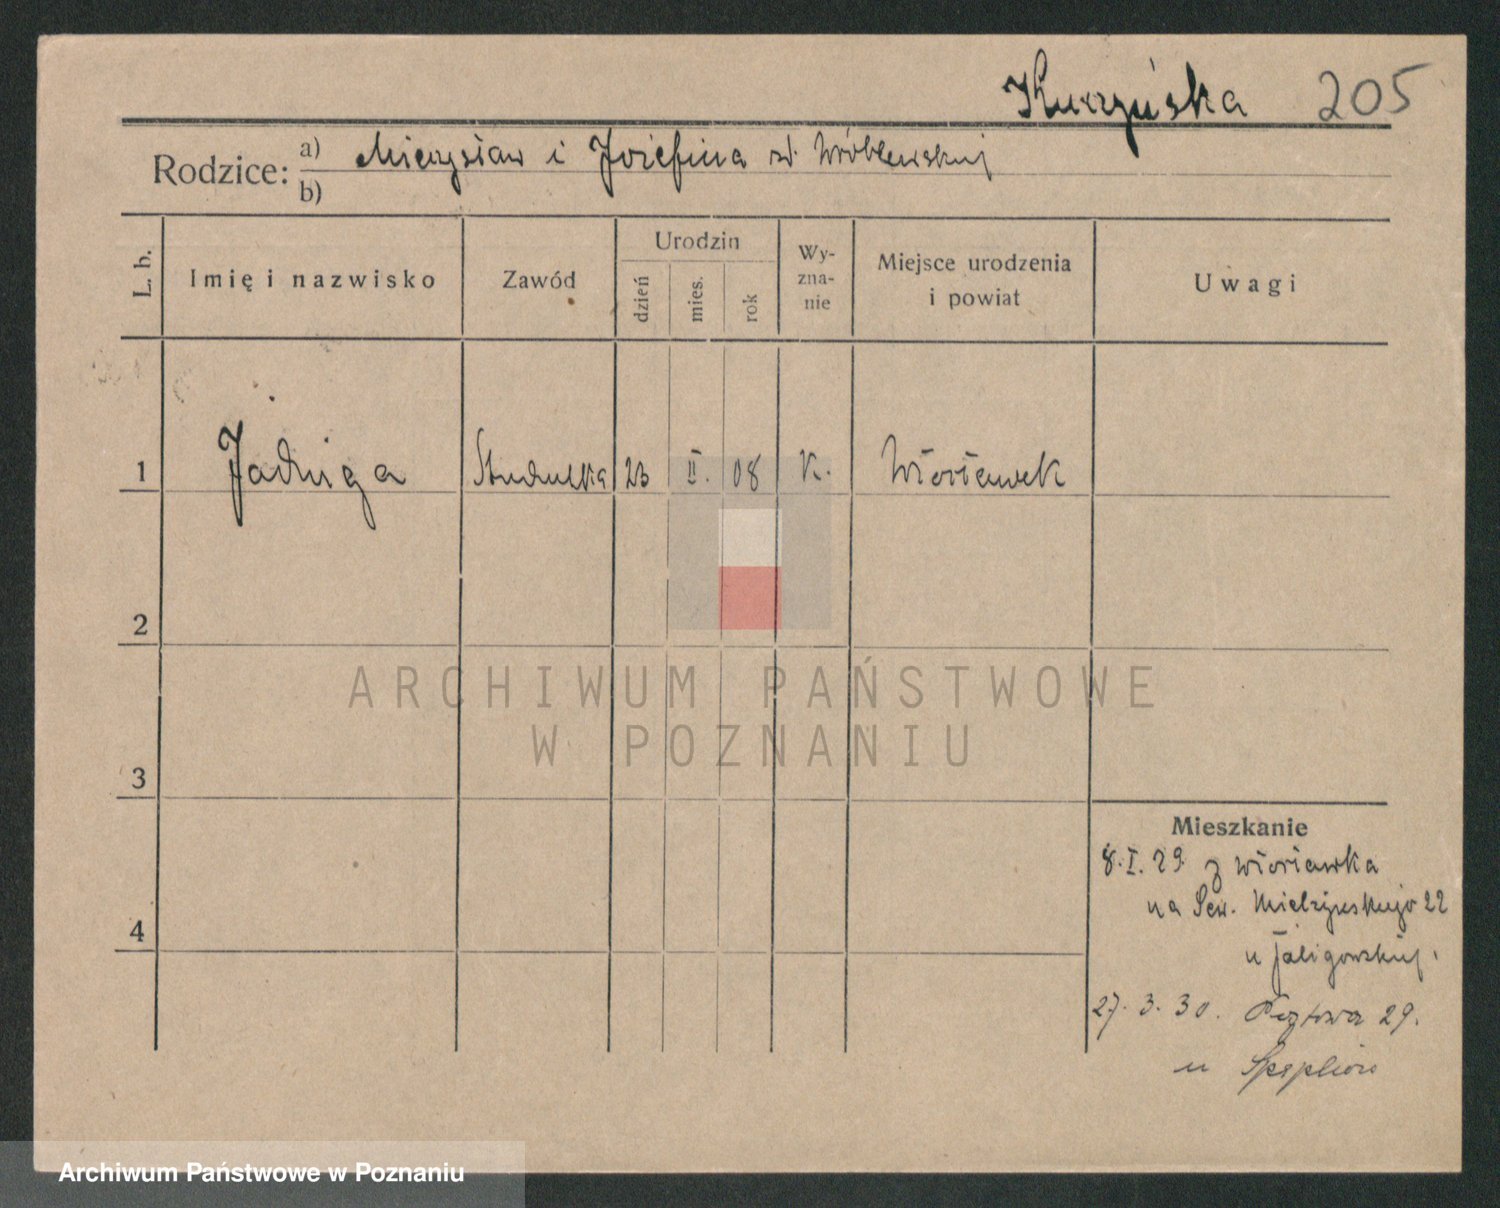 205
Rodzice: a) Mieczysław i Józefina z d. Wróblewskiej
b)
L. b.
Imię i nazwisko
Zawód
Urodzin
dzień
mies.
rok
Wy-
zna-
nie
Miejsce urodzenia
i powiat
Uwagi
1 Jadwiga Studentka 23 II. 08 K.
2
3
4
ARCHIWUM PAŃSTWOWE
W POZNANIU
Mieszkanie
8.I.29. z
na Sew. Mielżyńskiego 22
u
27.3.30. 29.
u
Archiwum Państwowe w Poznaniu